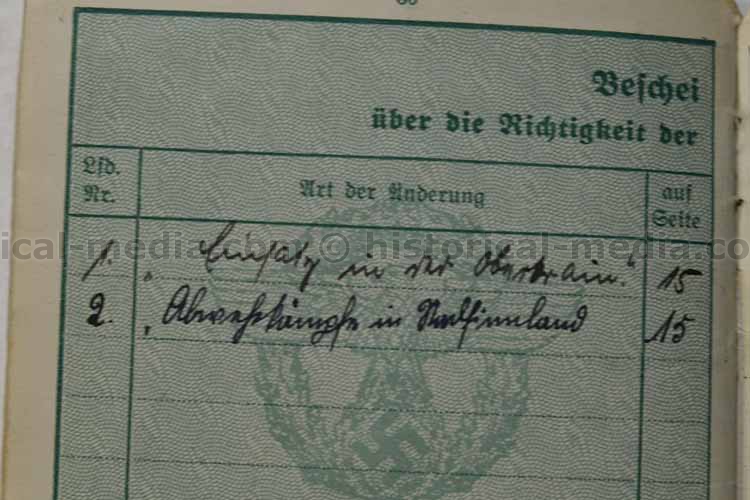 Beschei
über die Richtigkeit der
Lfd. Nr.
Art der Änderung
auf Seite
1. „Einsatz in der Oberkrain." 15
ical-media © historical-media.co
2. „Abwehrkämpfe in Nordfinnland 15